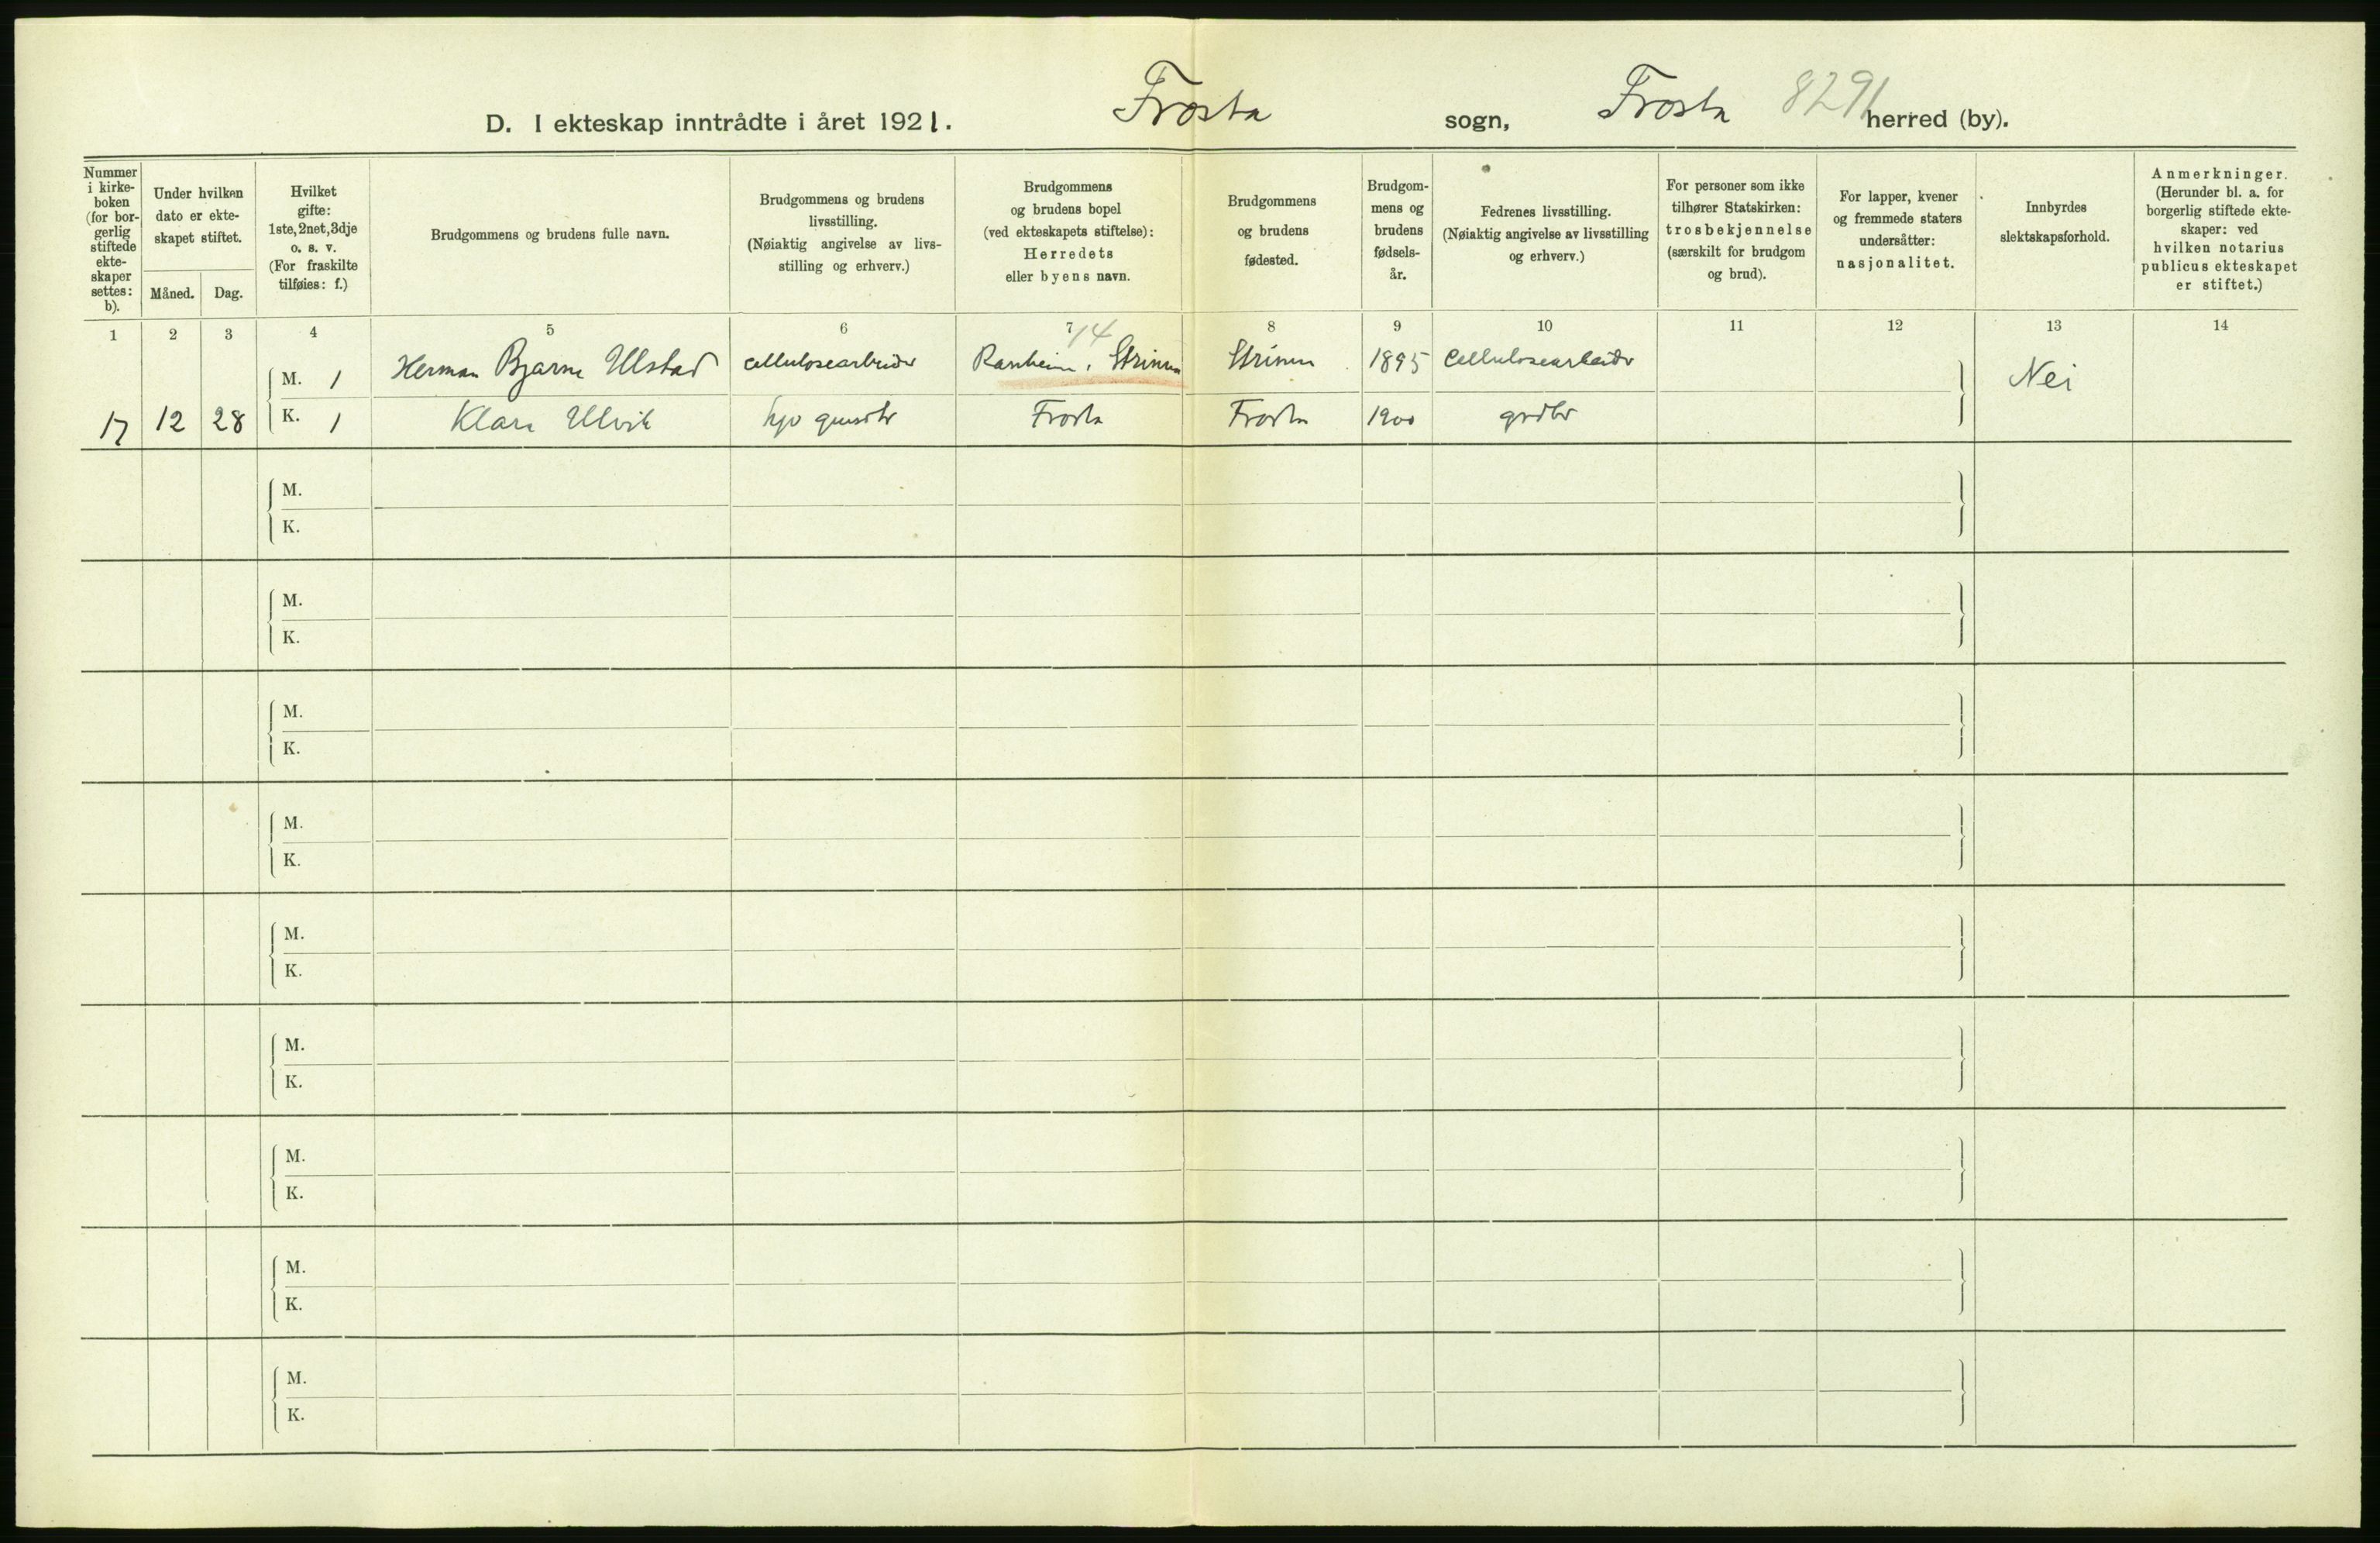 D. I ekteskap inntrådte i året 1921. Frosta sogn, Frosta 8291 herred (by).
Nummer
i kirke-
boken
(for bor-
gerlig
stiftede
ekte-
skaper
settes:
b).
Under hvilken
dato er ekte-
skapet stiftet.
Måned. Dag.
Hvilket
gifte:
1ste, 2net, 3dje
o. s. v.
(For fraskilte
tilføies: f.)
Brudgommens og brudens fulle navn.
Brudgommens og brudens
livsstilling.
(Nøiaktig angivelse av livs-
stilling og erhverv.)
Brudgommens
og brudens bopel
(ved ekteskapets stiftelse):
Herredets
eller byens navn.
Brudgommens
og brudens
fødested.
Brudgom-
mens og
brudens
fødsels-
år.
Fedrenes livsstilling.
(Nøiaktig angivelse av livsstilling
og erhverv.)
For personer som ikke
tilhører Statskirken:
trosbekjennelse
(særskilt for brudgom
og brud).
For lapper, kvener
og fremmede staters
undersåtter:
nasjonalitet.
Innbyrdes
slektskapsforhold.
Anmerkninger.
(Herunder bl. a. for
borgerlig stiftede ekte-
skaper: ved
hvilken notarius
publicus ekteskapet
er stiftet.)
1 2 3 4 5 6 7 8 9 10 11 12 13 14
14
M. 1 Herman Bjarne Ulstad cellulosearbeider Ranheim, Strinen Strinen 1895 cellulosearbeider Nei
17 12 28 K. 1 Klara Ulvik Frosta Frosta 1900 grdbr
M.
K.
M.
K.
M.
K.
M.
K.
M.
K.
M.
K.
M.
K.
M.
K.
M.
K.